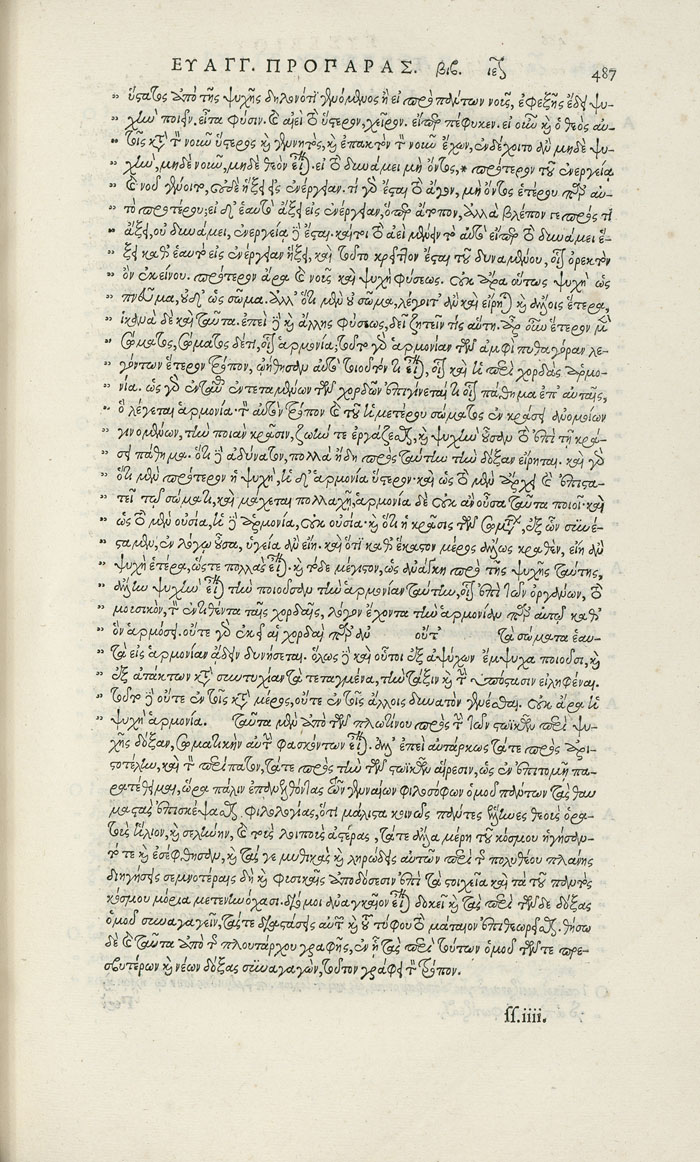 ΕΥΑΓΓ. ΠΡΟΠΑΡΑΣ. βιβ. ιεʹ 487
ὕστατος ἀπὸ τῆς ψυχῆς δηλονότι γενόμενος ἢ εἰ πρὸ πάντων νοῦς, ἐφεξῆς ἔδει ψυ-
χὴν ποιεῖν. εἶτα φύσιν. καὶ αἰεὶ τὸ ὕστερον, χεῖρον. εἴπερ πέφυκεν. εἰ οὖν καὶ ὁ θεὸς αὐ-
τοῖς κατὰ τὸν νοῦν ὕστερος καὶ γεννητὸς, καὶ ἐπακτὸν τὸν νοῦν ἔχων, ἐνδέχοιτο ἂν μηδὲ ψυ-
χὴν, μηδὲ νοῦν, μηδὲ θεὸν εἶναι. εἰ τὸ δυνάμει μὴ ὄντος, * πρότερον τοῦ ἐνεργείᾳ
καὶ νοῦ γένοιτο, οὐδὲ ἥξει εἰς ἐνέργειαν. τί γὰρ ἔσται τὸ ἄγον, μὴ ὄντος ἑτέρου παρ' αὐ-
τὸ προτέρου; εἰ δ' ἑαυτὸ ἄξει εἰς ἐνέργειαν, ὅπερ ἄτοπον, ἀλλὰ βλέπον γε πρός τι
ἄξει, οὐ δυνάμει, ἐνεργείᾳ δὲ ἔσται. καίτοι τὸ ἀεὶ μένειν τὸ αὐτὸ εἴπερ τὸ δυνάμει ἕ-
ξει καθ' ἑαυτὸ εἰς ἐνέργειαν ἥξει, καὶ τοῦτο κρεῖττον ἔσται τοῦ δυναμένου, οἷον ὀρεκτὸν
ὂν ἐκείνου. πρότερον ἄρα καὶ νοῦς καὶ ψυχὴ φύσεως. οὐκ ἄρα οὕτως ψυχὴ ὡς
πνεῦμα, οὐδ' ὡς σῶμα. ἀλλ' ὅτι μὲν οὐ σῶμα, λέγοιτ' ἂν καὶ εἴρηται καὶ ἄλλοις ἕτερα,
ἱκανὰ δὲ καὶ ταῦτα. ἐπεὶ δὲ καὶ ἄλλης φύσεως, δεῖ ζητεῖν τίς αὕτη. ἆρ' οὖν ἕτερον μὲν
σώματος, σώματος δέ τι, οἷον ἁρμονία, τοῦτο γὰρ ἁρμονίαν τῶν ἀμφὶ πυθαγόραν λε-
γόντων ἕτερον τρόπον, ᾠήθησαν αὐτὸ τοιοῦτόν τι εἶναι, οἷον καὶ ἡ περὶ χορδὰς ἁρμο-
νία. ὡς γὰρ ἐνταῦθα ἐντεταμένων τῶν χορδῶν ἐπιγίνεταί τι οἷον πάθημα ἐπ' αὐταῖς,
ὃ λέγεται ἁρμονία· τὸν αὐτὸν τρόπον καὶ τοῦ ἡμετέρου σώματος ἐν κράσει ἀνομοίων
γινομένων, τὴν ποιὰν κρᾶσιν, ζωήν τε ἐργάζεσθαι, καὶ ψυχὴν οὖσαν τὸ ἐπὶ τῇ κρά-
σει πάθημα. ὅτι δὲ ἀδύνατον, πολλὰ ἤδη πρὸς ταύτην τὴν δόξαν εἴρηται. καὶ γὰρ
ὅτι μὲν πρότερον ἡ ψυχὴ, ἡ δ' ἁρμονία ὕστερον· καὶ ὡς τὸ μὲν ἄρχει καὶ ἐπιστα-
τεῖ τῷ σώματι, καὶ μάχεται πολλαχῇ, ἁρμονία δὲ οὐκ ἂν οὖσα ταῦτα ποιοῖ· καὶ
ὡς τὸ μὲν οὐσία, ἡ δὲ ἁρμονία, οὐκ οὐσία· καὶ ὅτι ἡ κρᾶσις τῶν σωμάτων, ἐξ ὧν συνέ-
σταμεν, ἐν λόγῳ οὖσα, ὑγεία ἂν εἴη. καὶ ὅτι καθ' ἕκαστον μέρος ἄλλως κραθὲν, εἴη ἂν
ψυχὴ ἑτέρα, ὥστε πολλὰς εἶναι. καὶ τόδε μέγιστον, ὡς ἀνάγκη πρὸ τῆς ψυχῆς ταύτης,
ἄλλην ψυχὴν εἶναι τὴν ποιοῦσαν τὴν ἁρμονίαν ταύτην, οἷον ἐπὶ τῶν ὀργάνων, τὸν
μουσικὸν, τὸν ἐντιθέντα ταῖς χορδαῖς, λόγον ἔχοντα τὴν ἁρμονίαν παρ' αὐτῷ καθ'
ὃν ἁρμόσει. οὔτε γὰρ ἐκεῖ αἱ χορδαὶ παρ' ἂν οὔτ τὰ σώματα ἑαυ-
τὰ εἰς ἁρμονίαν ἄγειν δυνήσεται. ὅλως δὲ καὶ οὗτοι ἐξ ἀψύχων ἔμψυχα ποιοῦσι, καὶ
ἐξ ἀτάκτων κατὰ συντυχίαν τὰ τεταγμένα, τὴν τάξιν καὶ τὴν ὑπόστασιν εἰληφέναι.
τοῦτο δὲ οὔτε ἐν τοῖς κατὰ μέρος, οὔτε ἐν τοῖς ἄλλοις δυνατὸν γενέσθαι. οὐκ ἄρα ἡ
ψυχὴ ἁρμονία. Ταῦτα μὲν ἀπὸ τῶν πλωτίνου πρὸς τὴν τῶν στωϊκῶν περὶ ψυ-
χῆς δόξαν, σωματικὴν αὐτὴν φασκόντων εἶναι. ἀλλ' ἐπεὶ αὐτάρκως τά τε πρὸς ἀρι-
στοτέλην, καὶ τὸν περίπατον, τά τε πρὸς τὴν τῶν στωϊκῶν αἵρεσιν, ὡς ἐν ἐπιτομῇ πα-
ρατέθειμαι, ὥρα πάλιν ἐπανελθόντας τῶν γενναίων φιλοσόφων ὁμοῦ πάντων τὰς θαυ-
μαστὰς ἐπισκέψασθαι φυσιολογίας, ὅτι μάλιστα κοινῶς πάντες ἕλληνες θεοὺς ὁρα-
τοὺς ἥλιον, καὶ σελήνην, καὶ τοὺς λοιποὺς ἀστέρας, τά τε ἄλλα μέρη τοῦ κόσμου ἡγήσαν-
τό τε καὶ ἐσέφθησαν, καὶ τάς γε μυθικὰς καὶ ληρώδεις αὐτῶν περὶ τῆς πολυθέου πλάνης
διηγήσεις σεμνοτέραις δὴ καὶ φυσικαῖς ἀποδόσεσιν ἐπὶ τὰ στοιχεῖα καὶ τὰ τοῦ παντὸς
κόσμου μόρια μετενηνόχασι. διό μοι ἀναγκαῖον εἶναι δοκεῖ καὶ τὰς περὶ τῶνδε δόξας
ὁμοῦ συναγαγεῖν, τάς τε διαστάσεις αὐτῶν καὶ τοῦ τύφου τὸ μάταιον ἐπιθεωρῆσαι. θήσω
δὲ καὶ ταῦτα ἀπὸ τῆς πλουτάρχου γραφῆς, ἐν ᾗ τὰς περὶ τούτων ὁμοῦ τῶν τε πρε-
σβυτέρων καὶ νέων δόξας συναγαγὼν, τοῦτον γράφει τὸν τρόπον.
ſſ.iiii.